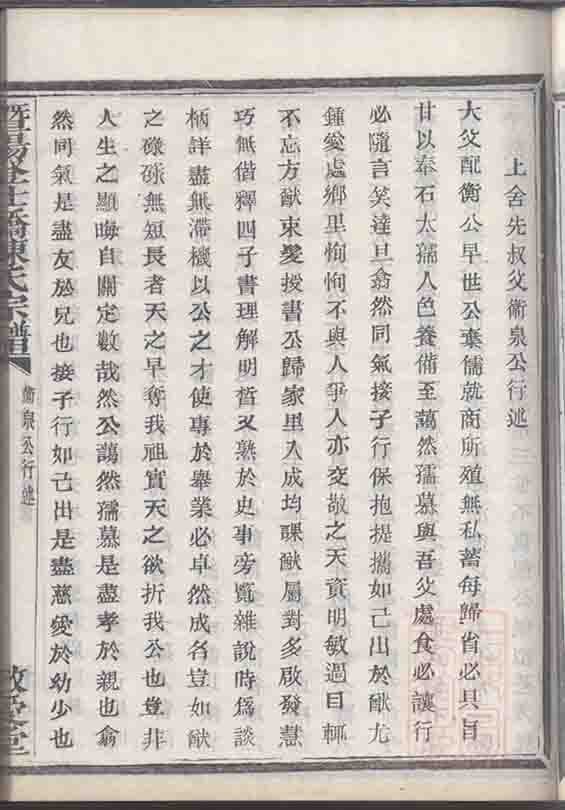 上舍先叔父衛泉公行述
大父配衡公早世公棄儒就商所殖無私蓄每歸省必具旨
甘以奉石太孺人色養備至藹然孺慕與吾父處食必讓行
必隨言笑達旦翕然同氣接子行保抱提攜如己出於猷尤
鍾愛處鄉里恂恂不與人爭人亦交敬之天資明敏過目輒
不忘方猷束髮授書公歸家里入成均課猷屬對多啟發慧
巧無偕釋四子書理解明晳又熟於史事旁覽雜說時爲談
柄詳盡無滯機以公之才使專於舉業必卓然成名豈如猷
之碌碌無短長者天之早奪我祖實天之欲折我公也豈非
人生之顯晦自關定數哉然公藹然孺慕是盡孝於親也翕
然同氣是盡友於兄也接子行如己出是盡慈愛於幼少也
暨陽 士橋陳氏宗譜
衛泉公行述